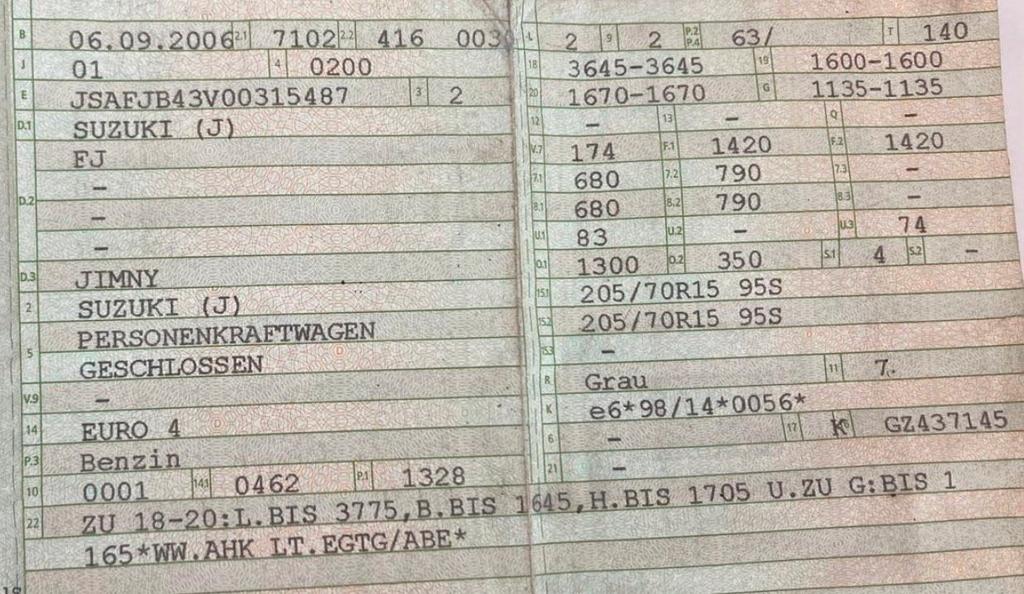 B 06.09.2006 2.1 7102 2.2 416 003
J 01 4 0200
E JSAFJB43V00315487 3 2
D.1 SUZUKI (J)
FJ
D.2 –
–
–
D.3 JIMNY
2 SUZUKI (J)
5 PERSONENKRAFTWAGEN
GESCHLOSSEN
V.9 –
14 EURO 4
P.3 Benzin
10 0001 14.1 0462 P.1 1328
L 2 9 2 P.2 P.4 63/ T 140
18 3645-3645 19 1600-1600
20 1670-1670 G 1135-1135
12 – 13 – Q –
V.7 174 F.1 1420 F.2 1420
7.1 680 7.2 790 7.3 –
8.1 680 8.2 790 8.3 –
U.1 83 U.2 – U.3 74
O.1 1300 O.2 350 S.1 4 S.2 –
15.1 205/70R15 95S
15.2 205/70R15 95S
15.3 –
R Grau 11 7
K e6*98/14*0056*
6 – 17 K GZ437145
21 –
22 ZU 18-20:L.BIS 3775,B.BIS 1645,H.BIS 1705 U.ZU G:BIS 1
165*WW.AHK LT.EGTG/ABE*